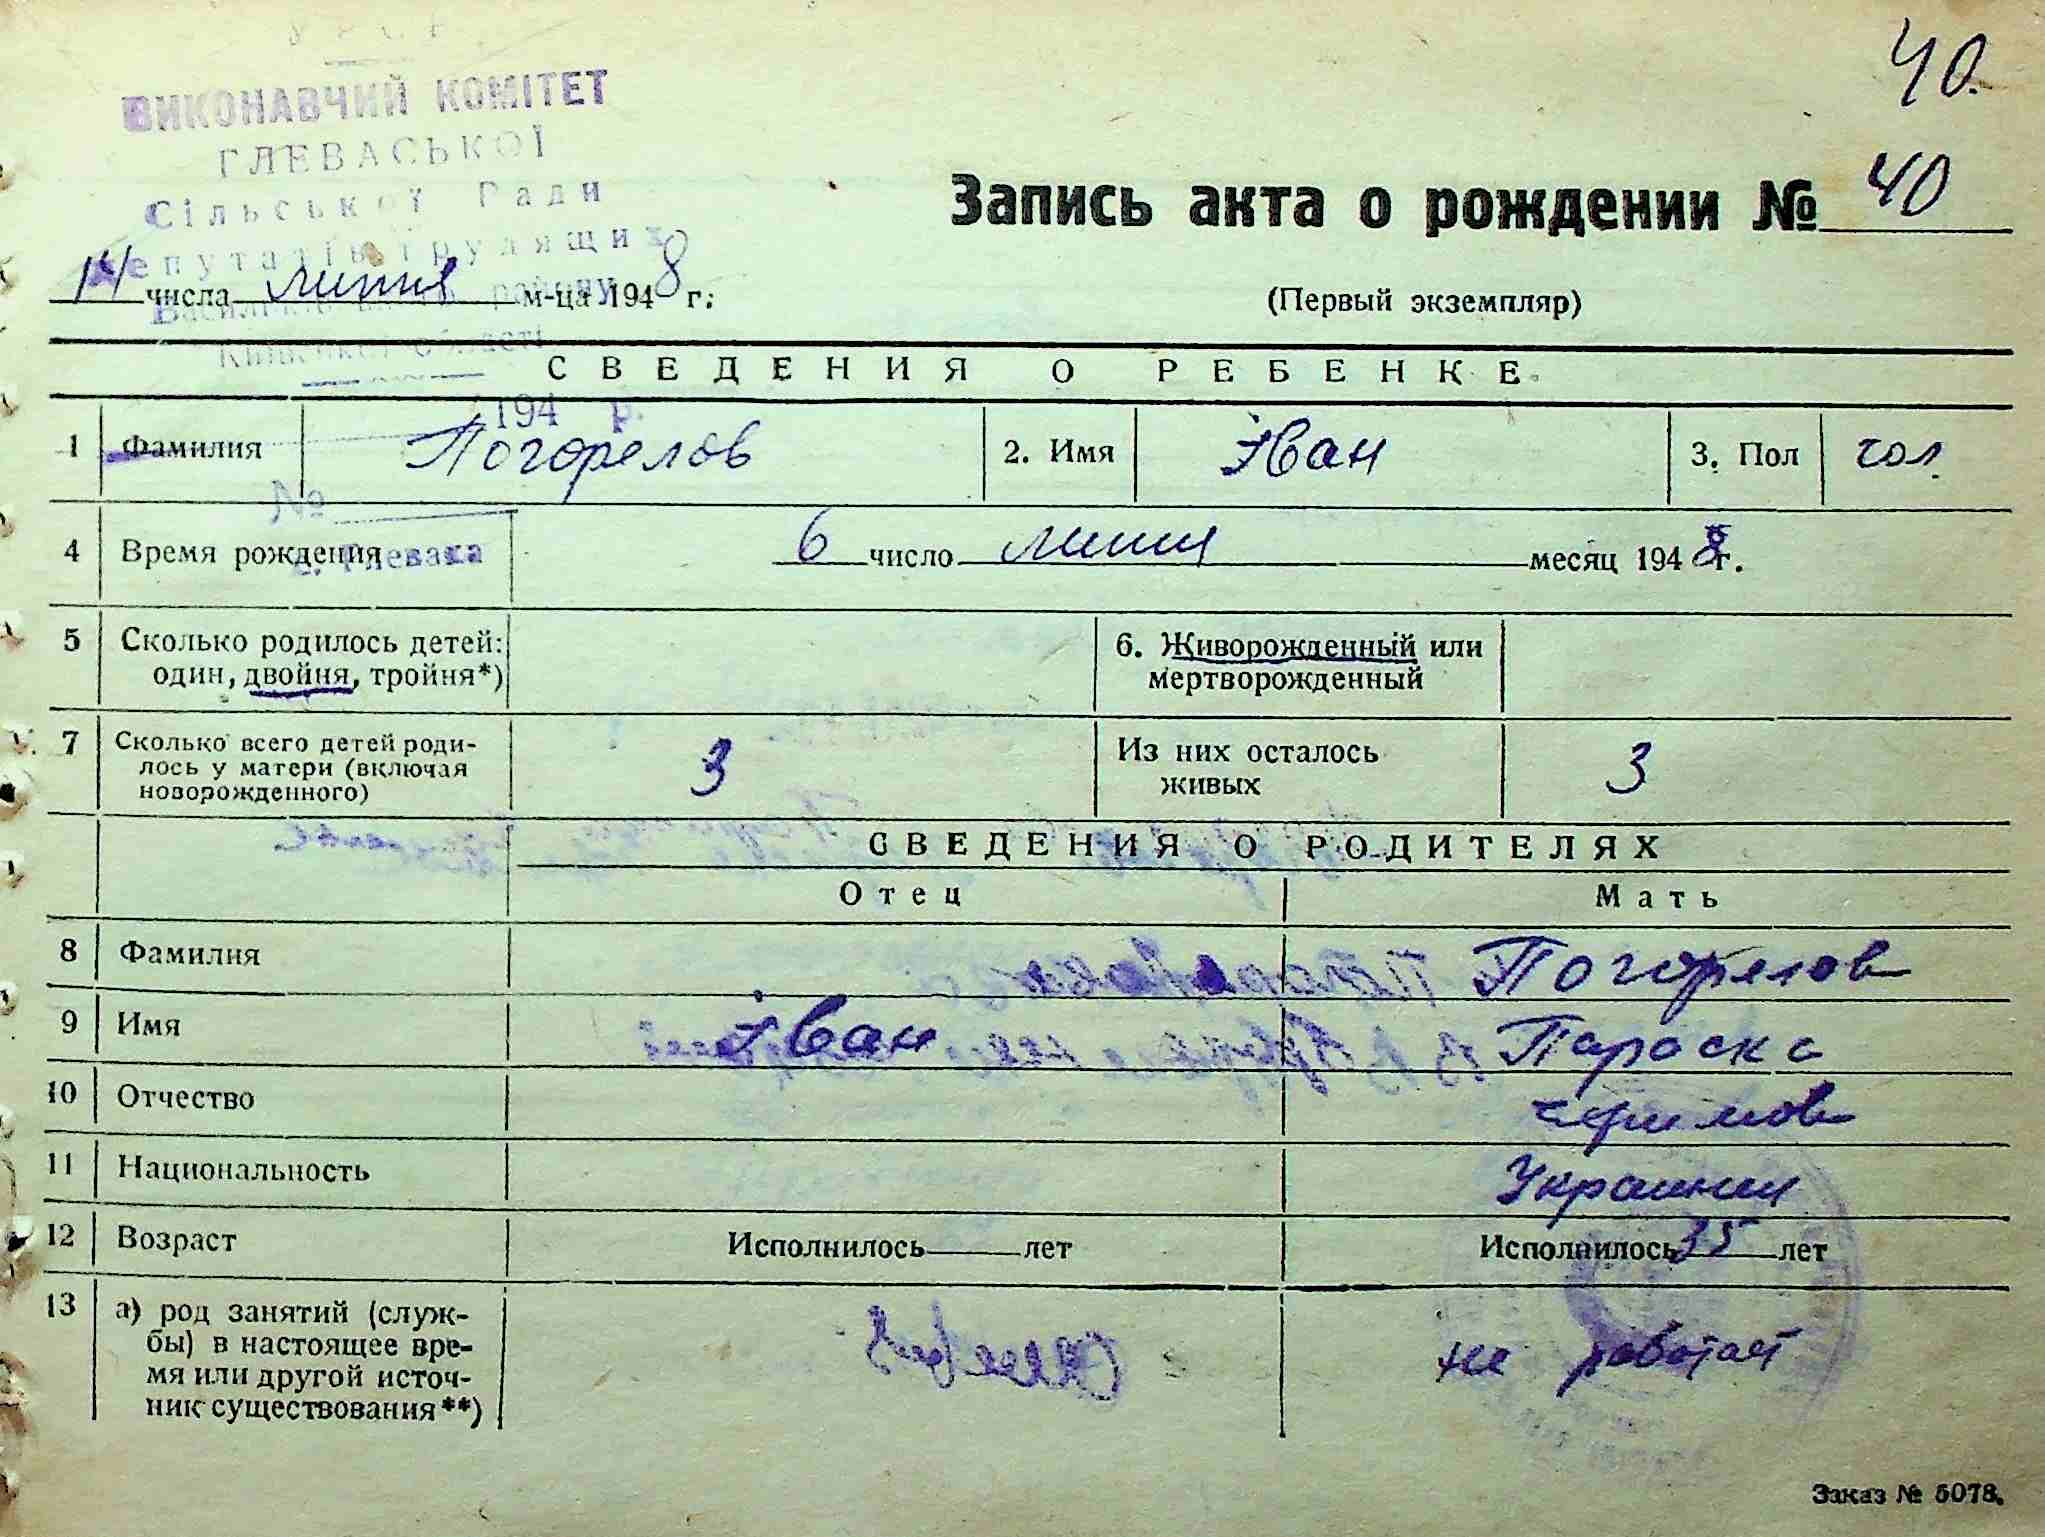 УРСР
ВИКОНАВЧИЙ КОМІТЕТ
ГЛЕВАСЬКОЇ
Сільської Ради
депутатів трудящих
Васильківського району
Київської області
194 р.
№
с. Глеваха
40.
Запись акта о рождении № 40
14 числа липня м-ца 1948 г.
(Первый экземпляр)
СВЕДЕНИЯ О РЕБЕНКЕ
1 Фамилия Погорелов 2. Имя Іван 3. Пол чол.
4 Время рождения 6 число липня месяц 1948 г.
5 Сколько родилось детей: один, двойня, тройня*) 6. Живорожденный или мертворожденный
7 Сколько всего детей родилось у матери (включая новорожденного) 3 Из них осталось живых 3
СВЕДЕНИЯ О РОДИТЕЛЯХ
Отец Мать
8 Фамилия Погорелов
9 Имя Іван Параска
10 Отчество
11 Национальность
12 Возраст Исполнилось лет Исполнилось 35 лет
13 а) род занятий (служ-
бы) в настоящее вре-
мя или другой источ-
ник существования**) не работает
Заказ № 5078.